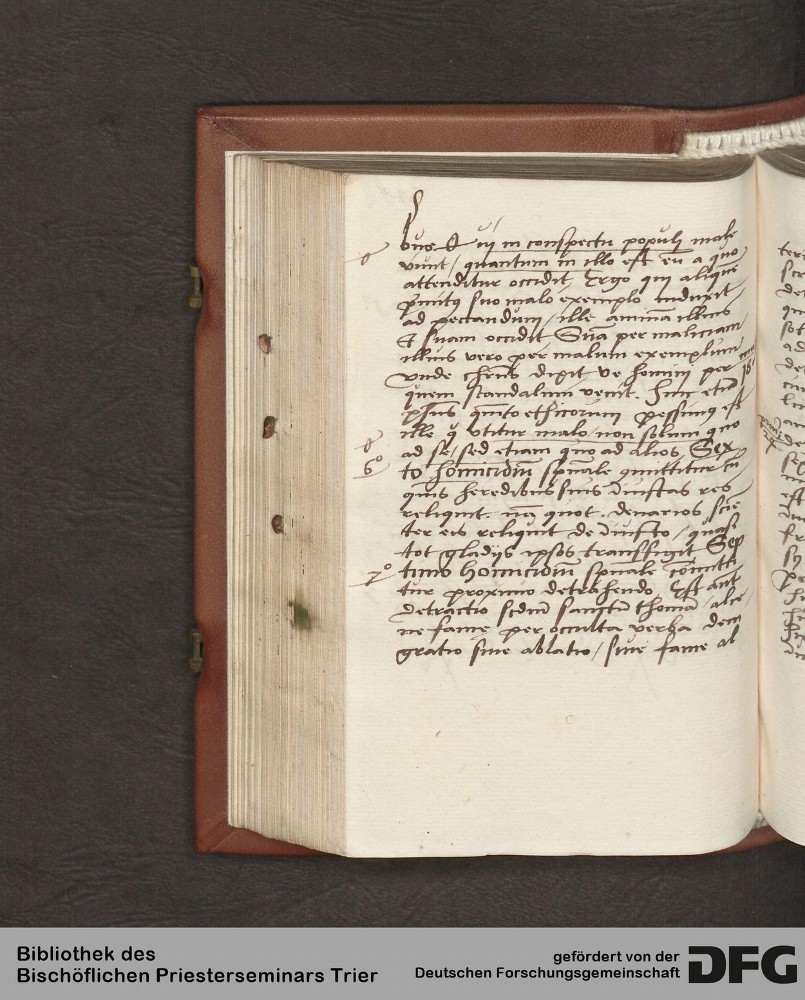 bus Et iij in conspectu populi male
vivunt / quantum in illo est eū a quo
attenditur occidit, Ergo qui aliquē
suo malo exemplo induxit
ad peccandum / ille animā illius
Et suam occidit Suā per maliciam
illius vero per malum exemplum
vnde chrūs dixit ve homini per
quem scandalum venit. Hinc etiā
phūs quinto ethicorum pessimus est
ille q̄ vtitur malo / non solum quo
ad se / sed etiam quo ad alios, Sex
6°
to homicidiū spūale committitur cū
quis heredibus suis iniustas res
reliquit. nā quot denarios scien
ter eis reliquit de iniusto / quasi
tot gladijs ipsos transfigit Sep
7°
timo homicidiū spūale committi
tur proximo detrahendo, Est aut
detractio scdm̄ sanctū thomā / alie
ne fame per occulta verba deni
gratio siue ablatio / siue fame al
Bibliothek des
Bischöflichen Priesterseminars Trier
gefördert von der
Deutschen Forschungsgemeinschaft
DFG